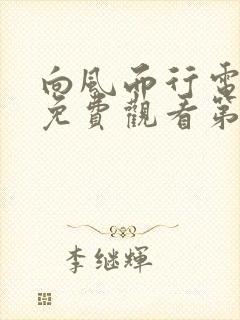 向風而行電
免費觀看第
李继輝